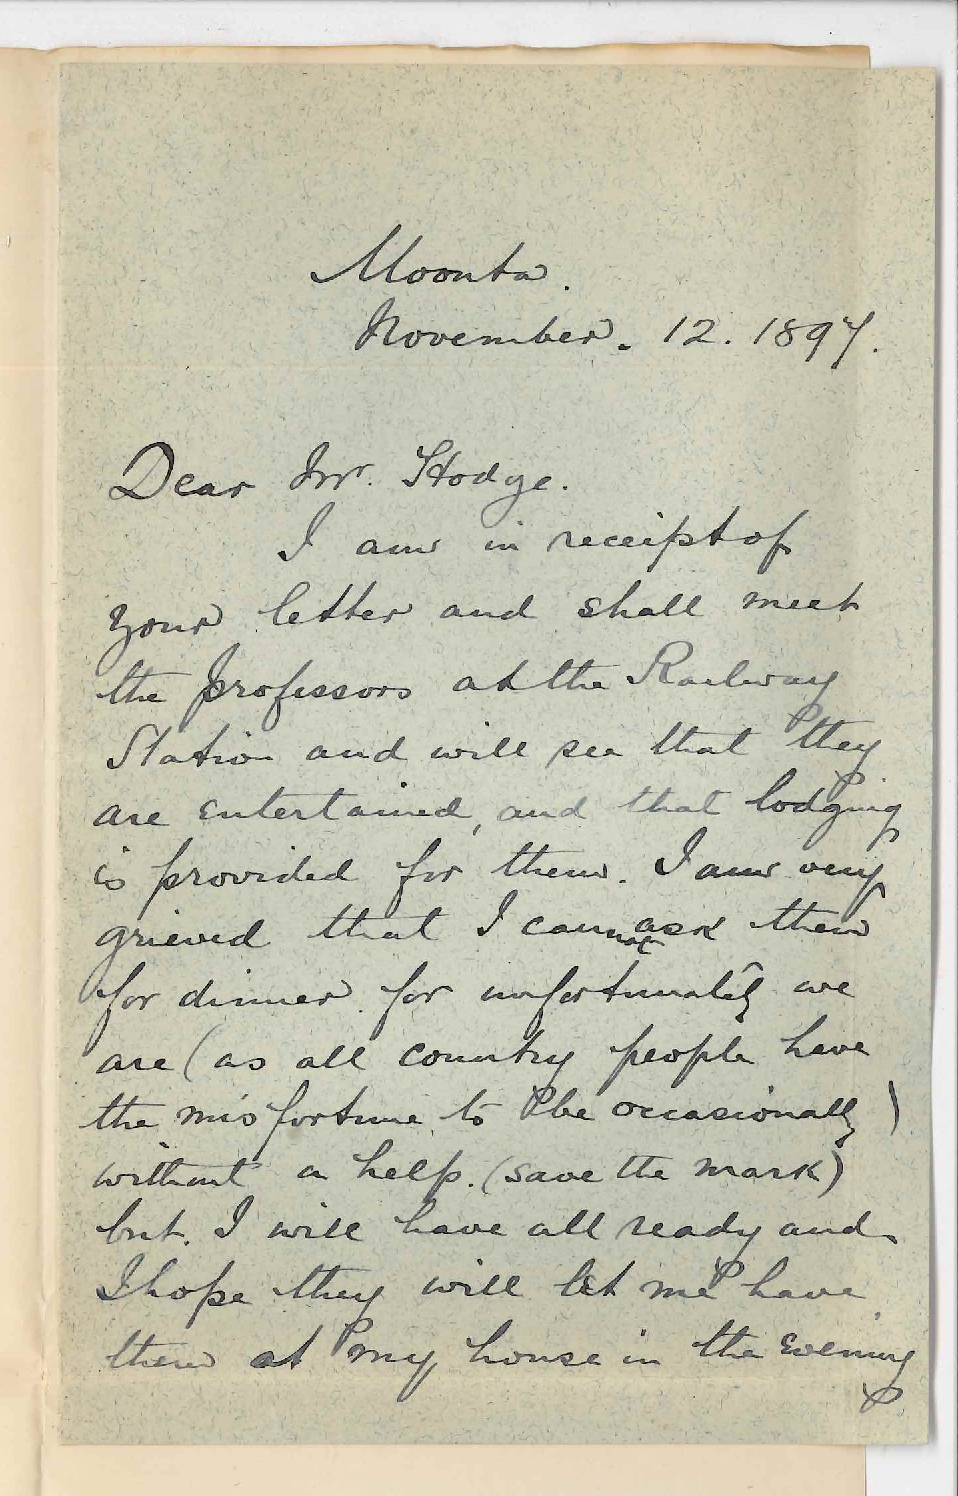 Moonta.
November. 12. 1897.
Dear Mr. Hodge.
I am in receipt of
your letter and shall meet
the professors at the Railway
Station and will see that they
are entertained, and that lodging
is provided for them. I am very
grieved that I cannot ask them
for dinner for unfortunately we
are (as all country people have
the misfortune to be occasionally)
without a help. (save the mark)
but. I will have all ready and
I hope they will let me have
them at my house in the evening